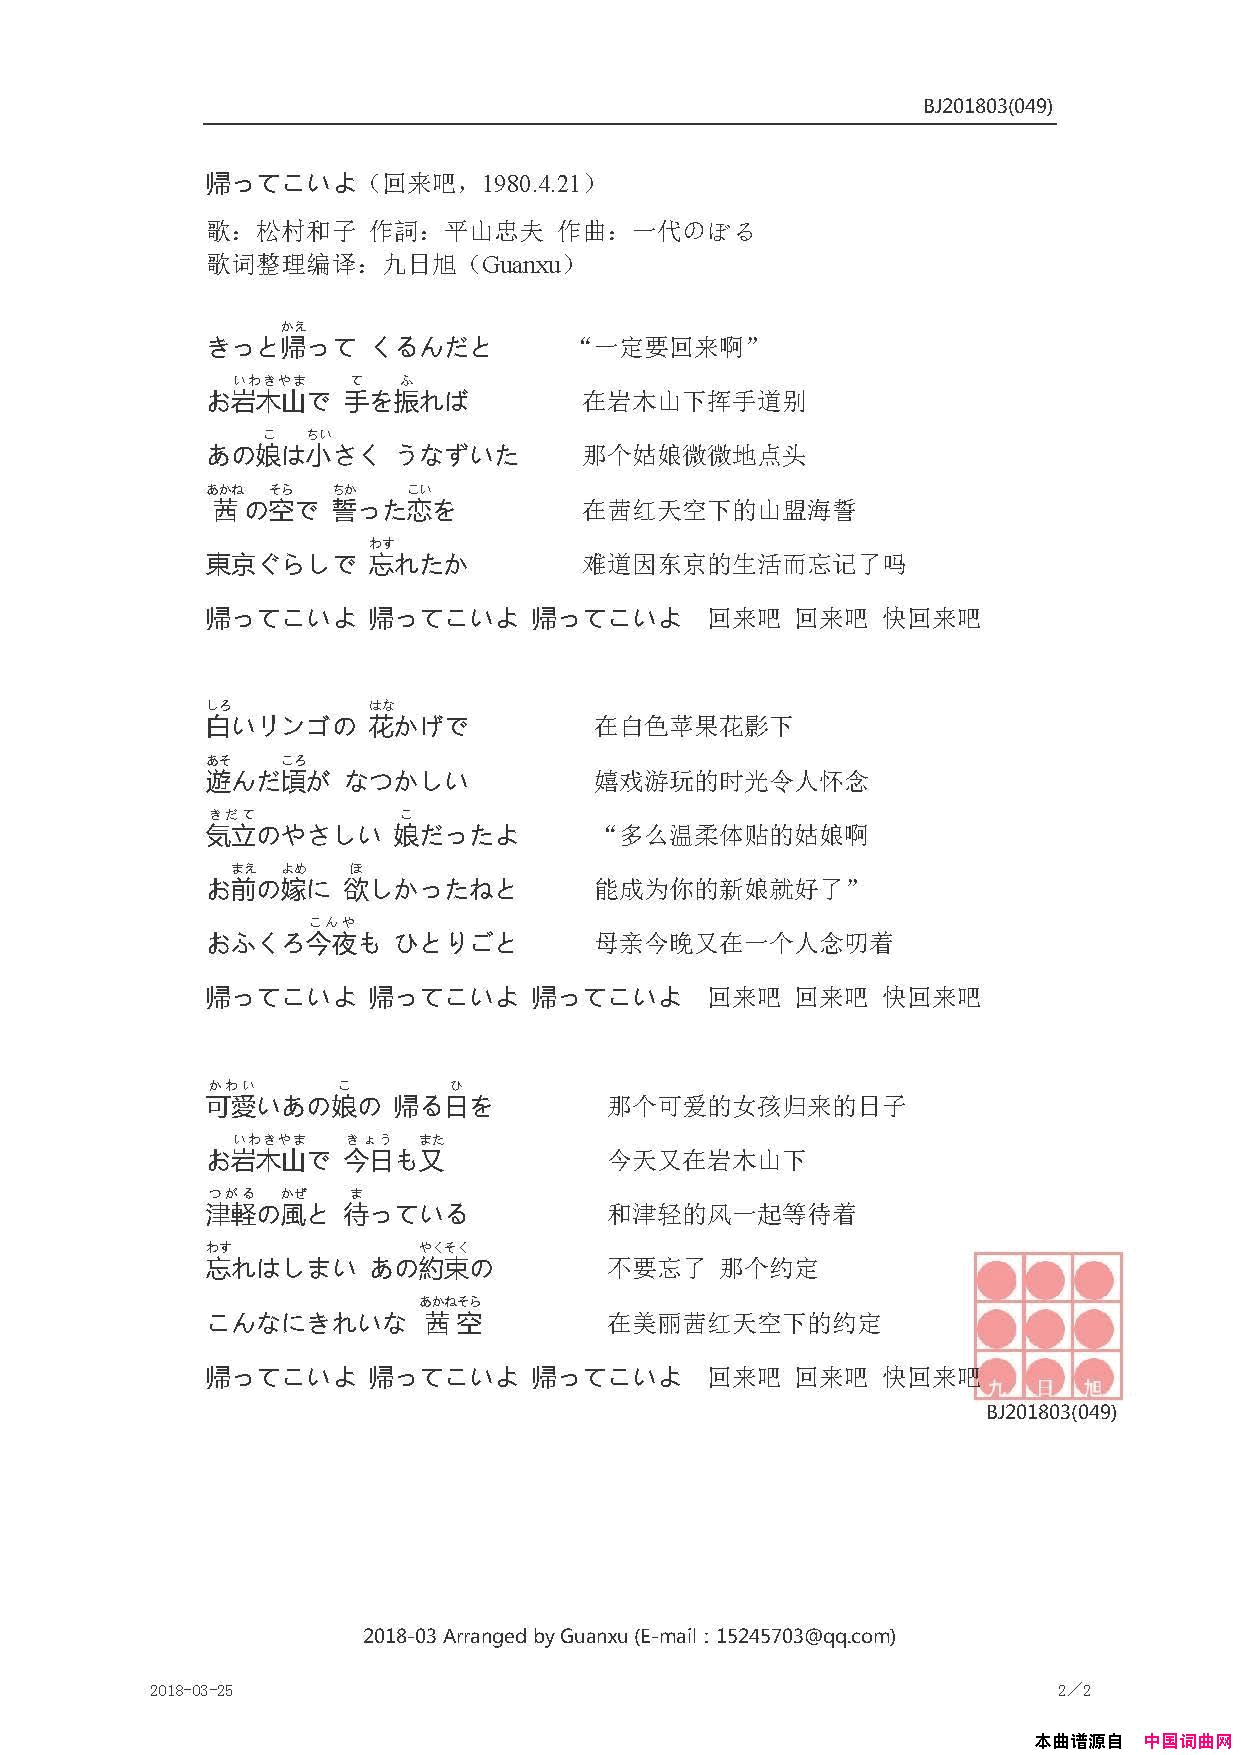 BJ201803(049)
帰ってこいよ（回来吧，1980.4.21）
歌：松村和子 作詞：平山忠夫 作曲：一代のぼる
歌词整理编译：九日旭（Guanxu）
かえ
きっと帰って くるんだと “一定要回来啊”
いわきやま て ふ
お岩木山で 手を振れば 在岩木山下挥手道别
こ ちい
あの娘は小さく うなずいた 那个姑娘微微地点头
あかね そら ちか こい
茜の空で 誓った恋を 在茜红天空下的山盟海誓
わす
東京ぐらしで 忘れたか 难道因东京的生活而忘记了吗
帰ってこいよ 帰ってこいよ 帰ってこいよ 回来吧 回来吧 快回来吧
しろ はな
白いリンゴの 花かげで 在白色苹果花影下
あそ ころ
遊んだ頃が なつかしい 嬉戏游玩的时光令人怀念
きだて こ
気立のやさしい 娘だったよ “多么温柔体贴的姑娘啊
まえ よめ ほ
お前の嫁に 欲しかったねと 能成为你的新娘就好了”
こんや
おふくろ今夜も ひとりごと 母亲今晚又在一个人念叨着
帰ってこいよ 帰ってこいよ 帰ってこいよ 回来吧 回来吧 快回来吧
かわい こ ひ
可愛いあの娘の 帰る日を 那个可爱的女孩归来的日子
いわきやま きょう また
お岩木山で 今日も又 今天又在岩木山下
つがる かぜ ま
津軽の風と 待っている 和津轻的风一起等待着
わす やくそく
忘れはしまい あの約束の 不要忘了 那个约定
あかねそら
こんなにきれいな 茜空 在美丽茜红天空下的约定
帰ってこいよ 帰ってこいよ 帰ってこいよ 回来吧 回来吧 快回来吧
九 日 旭
BJ201803(049)
2018-03 Arranged by Guanxu (E-mail : 15245703@qq.com)
2018-03-25 2／2
本曲谱源自 中国词曲网